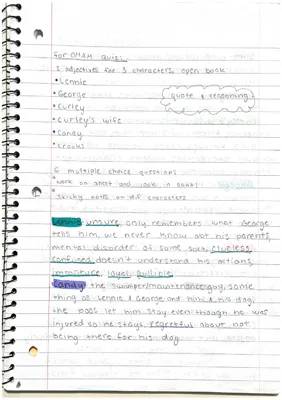 for OMAM quiz:
2 adjectives for 3 characters, open book
• Lennie
• George
quote & reasoning
• Curley
• Curley's wife
• Candy
• Crooks
6 multiple choice questions
* work on sheet and look in book!
* sticky notes on diff characters
Lennie: unsure, only remembers what George
tells him, we never know abt his parents,
mental disorder of some sort, clueless,
confused, doesn't understand his actions,
immature, loyal, gullible
Candy: the swamper/maintenance guy, same
thing as Lennie & George and him & his dog,
the boss let him stay even though he was
injured so he stays, regretful about not
being there for his dog.